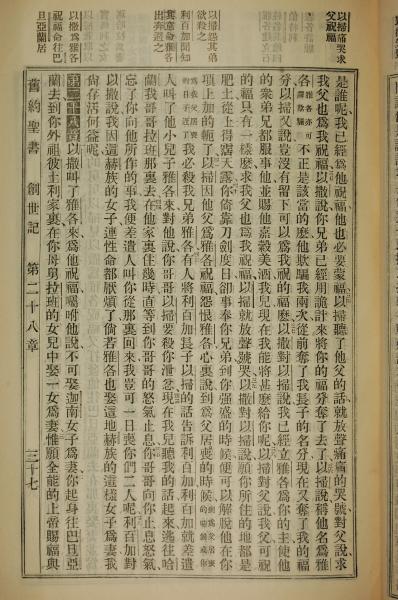 以掃痛哭求
父祝福
以掃怨其弟
欲殺之
利百加聞知
竟意命雅各
出奔避之
以撒為雅各
祝福命往巴
旦亞蘭居
是誰呢我已經為他祝福他也必要蒙福以掃聽了他父的話就放聲痛痛的哭號對父說求
我父也為我祝福以撒說你兄弟已經用詭計來將你的福分奪了去了以掃說稱他名為雅
各不正是該當的麼他欺騙我兩次從前奪了我長子的名分現在又奪了我的福
分以掃又說豈沒有留下可以為我祝的福麼以撒對以掃說我已經立雅各為你的主使他
的衆弟兄都服事他並賜他嘉穀美酒我兒現在我能將甚麼給你呢以掃對父說我父可視
的福只有一樣麼求我父也為我祝福以掃就放聲號哭以撒對以掃說願你所住的地都是
肥土從上得霑天露你倚靠刀劍度日卻事奉你兄弟到你强盛的時候便可以解脫他在你
項上加的軛了以掃因他父為雅各祝福怨恨雅各心裏說到為父居喪的時候
我必殺我兄弟雅各有人將利百加長子以掃的話告訴利百加利百加就差遣
人叫了他小兒子雅各來對他說你哥哥以掃要殺你洩忿現在我兒聽我的話起來逃往哈
蘭我哥哥拉班那裏去在他家裏住幾時直等到你哥哥的怒氣止息你哥哥向你止息怒氣
忘了你向他所作的事我便差遣人叫你從那裏回來我豈可一日喪你們二人呢利百加對
以撒說我因這赫族的女子連性命都厭煩了倘若雅各也娶這地赫族的這樣女子為妻我
尙存活何益呢
第二十八章以撒叫了雅各來為他祝福囑咐他說不可娶迦南女子為妻你起身往巴旦亞
蘭去到你外祖彼土利家裏在你母舅拉班的女兒中娶一女為妻惟願全能的上帝賜福與
舊約聖書　創世記　第二十八章　三十七